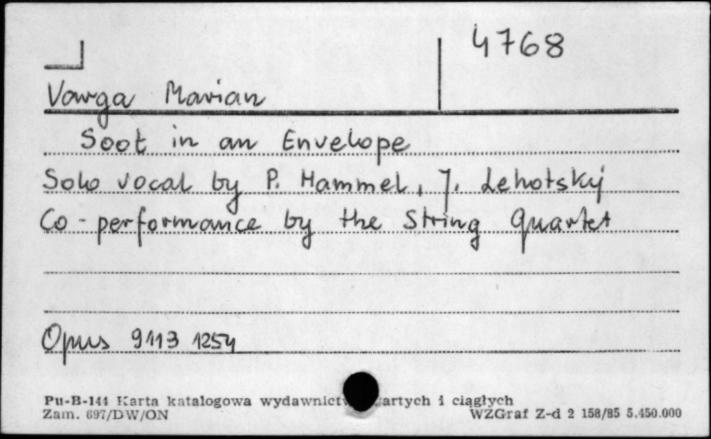 4768
Varga Marian
Soot in an Envelope
Solo vocal by P. Hammel, J. Lehotský
Co-performance by the String Quartet
Opus 9113 1254
Pu-B-144 Karta katalogowa wydawnictw zwartych i ciągłych
Zam. 697/DW/ON WZGraf Z-d 2 158/85 5.450.000